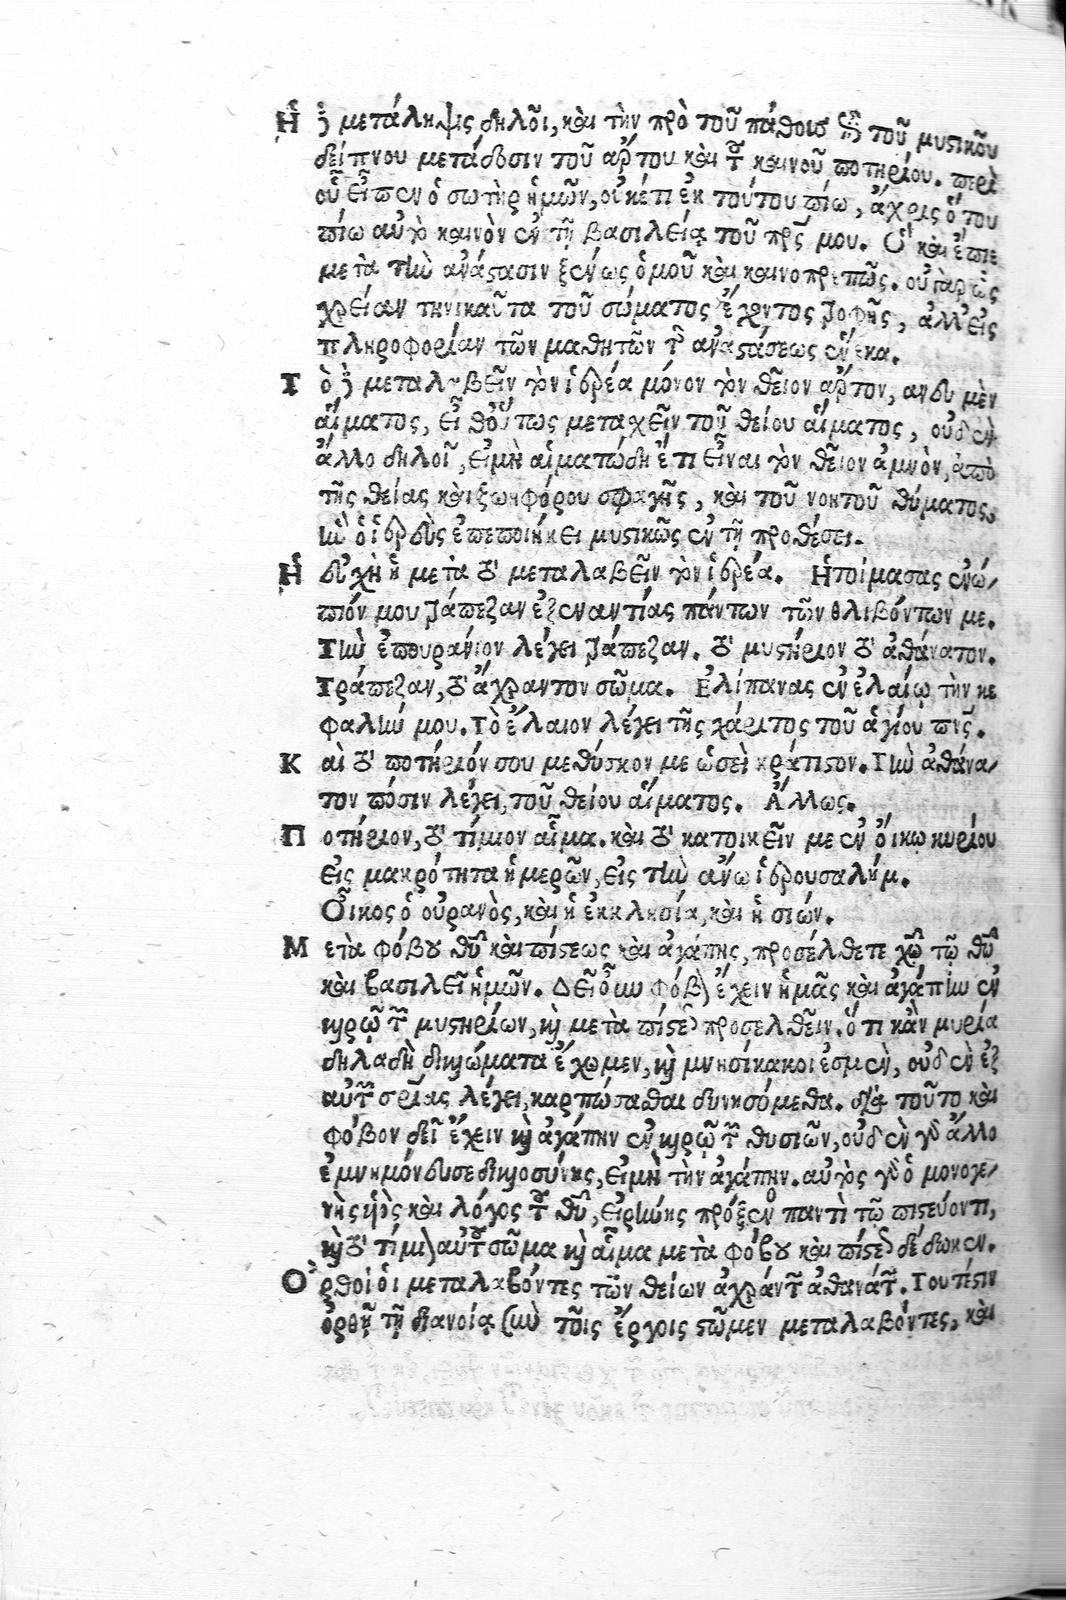 Ἡ δὲ μετάληψις δηλοῖ, καὶ τὴν πρὸ τοῦ πάθους τοῦ μυστικοῦ
δείπνου μετάδοσιν τοῦ ἄρτου καὶ τοῦ καινοῦ ποτηρίου. περὶ
οὗ εἶπεν ὁ σωτὴρ ἡμῶν, οὐκέτι ἐκ τούτου πίω, ἄχρις ὅτου
πίω αὐτὸ καινὸν ἐν τῇ βασιλείᾳ τοῦ πρς μου. Ὃ καὶ ἔπιε
μετὰ τὴν ἀνάστασιν ξένως ὁμοῦ καὶ καινοπρεπῶς. οὐ γὰρ ὡς
χρείαν τηνικαῦτα τοῦ σώματος ἔχοντος τροφῆς, ἀλλ' εἰς
πληροφορίαν τῶν μαθητῶν τῆς ἀναστάσεως ἕνεκα.
Τὸ δὲ μεταλαβεῖν τὸν ἱερέα μόνον τὸν θεῖον ἄρτον, ἄνευ μὲν
αἵματος, εἶθ' οὕτως μετασχεῖν τοῦ θείου αἵματος, οὐδὲν
ἄλλο δηλοῖ, εἰ μὴ αἱματώδη ἔτι εἶναι τὸν θεῖον ἀμνὸν, ἀπὸ
τῆς θείας καὶ ζωηφόρου σφαγῆς, καὶ τοῦ νοητοῦ θύματος,
ἣν ὁ ἱερεὺς ἐπεποιήκει μυστικῶς ἐν τῇ προθέσει.
Ἡ εὐχὴ ἡ μετὰ τὸ μεταλαβεῖν τὸν ἱερέα. Ἡτοίμασας ἐνώ-
πιόν μου τράπεζαν ἐξεναντίας πάντων τῶν θλιβόντων με.
Τὴν ἐπουράνιον λέγει τράπεζαν. τὸ μυστήριον τὸ ἀθάνατον.
Τράπεζαν, τὸ ἄχραντον σῶμα. Ἐλίπανας ἐν ἐλαίῳ τὴν κε
φαλήν μου. Τὸ ἔλαιον λέγει τῆς χάριτος τοῦ ἁγίου πνς.
Καὶ τὸ ποτήριόν σου μεθύσκον με ὡσεὶ κράτιστον. Τὴν ἀθάνα-
τον πόσιν λέγει, τοῦ θείου αἵματος. Ἄλλως.
Ποτήριον, τὸ τίμιον αἷμα. καὶ τὸ κατοικεῖν με ἐν οἴκῳ κυρίου
εἰς μακρότητα ἡμερῶν, εἰς τὴν ἄνω ἱερουσαλήμ.
Οἶκος ὁ οὐρανὸς, καὶ ἡ ἐκκλησία, καὶ ἡ σιών.
Μετὰ φόβου θυ καὶ πίστεως καὶ ἀγάπης, προσέλθετε χῷ τῷ θῷ
καὶ βασιλεῖ ἡμῶν. Δεῖ οὖν φόβον ἔχειν ἡμᾶς καὶ ἀγάπην ἐν
καιρῷ τῶν μυστηρίων, καὶ μετὰ πίστεως προσελθεῖν. ὅτι κἂν μυρία
δηλαδὴ δικαιώματα ἔχωμεν, καὶ μνησίκακοι ἐσμεν, οὐδὲν ἐξ
αὐτῶν σρίας λέγει, καρπώσασθαι δυνησόμεθα. διὰ τοῦτο καὶ
φόβον δεῖ ἔχειν καὶ ἀγάπην ἐν καιρῷ τῶν θυσιῶν, οὐδὲν γὰρ ἄλλο
ἐμνημόνευσε δικαιοσύνης, εἰ μὴ τὴν ἀγάπην. αὐτὸς γὰρ ὁ μονογε-
νὴς υἱὸς καὶ λόγος τοῦ θυ, εἰρήνης πρόξενον παντὶ τῷ πιστεύοντι,
καὶ τὸ τίμιον αὐτοῦ σῶμα καὶ αἷμα μετὰ φόβου καὶ πίστεως δέδωκεν.
Ὀρθοὶ οἱ μεταλαβόντες τῶν θείων ἀχράντων ἀθανάτων. Τουτέστιν
ὀρθῇ τῇ διανοίᾳ σὺν τοῖς ἔργοις στῶμεν μεταλαβόντες, καὶ